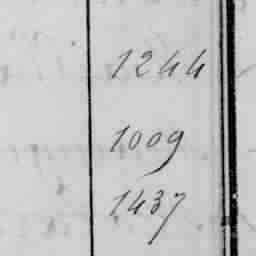 1244
1009
1437